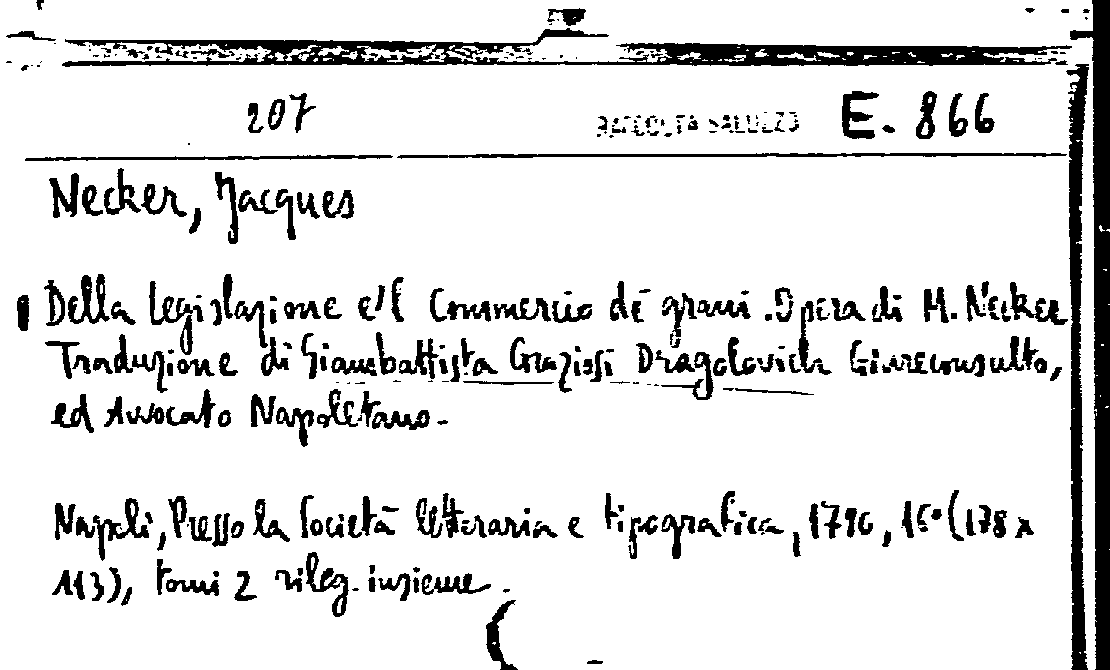 207 RACCOLTA SALUZZO E. 866
Necker, Jacques
Della legislazione e'l Commercio de grani. Opera di M. Necker
Traduzione di Giambattista Graziosi Dragolovich Giureconsulto,
ed Avvocato Napoletano.
Napoli, Presso la Società letteraria e tipografica, 16° (178 x
113), tomi 2 rileg. insieme.